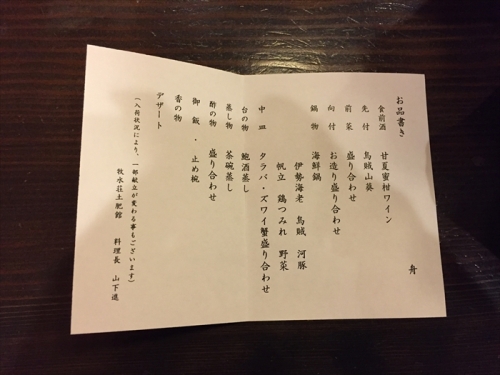 お品書き 舟
食前酒 甘夏蜜柑ワイン
先付 烏賊山葵
前菜 盛り合わせ
向付 お造り盛り合わせ
鍋物 海鮮鍋
伊勢海老 烏賊 河豚
帆立 鶏つみれ 野菜
中皿 タラバ・ズワイ蟹盛り合わせ
台の物 鮑酒蒸し
蒸し物 茶碗蒸し
酢の物 盛り合わせ
御飯・止め椀
香の物
デザート
(入荷状況により、一部献立が変わる事もございます)
牧水荘土肥館 料理長 山下進